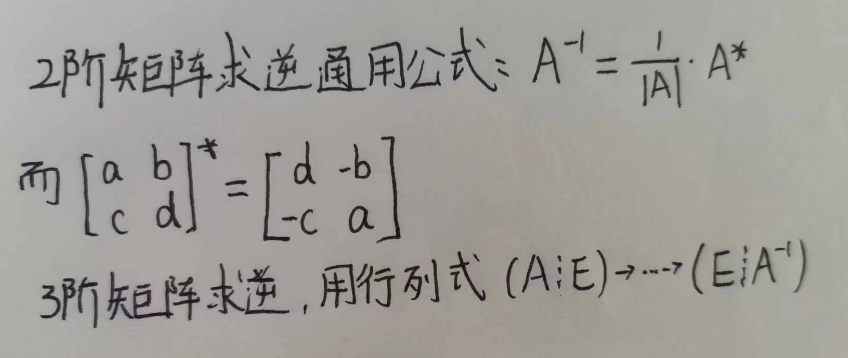 2阶矩阵求逆通用公式: A⁻¹ = 1/|A| · A*
而 [a b; c d]* = [d -b; -c a]
3阶矩阵求逆,用行列式 (A⋮E)→⋯→(E⋮A⁻¹)